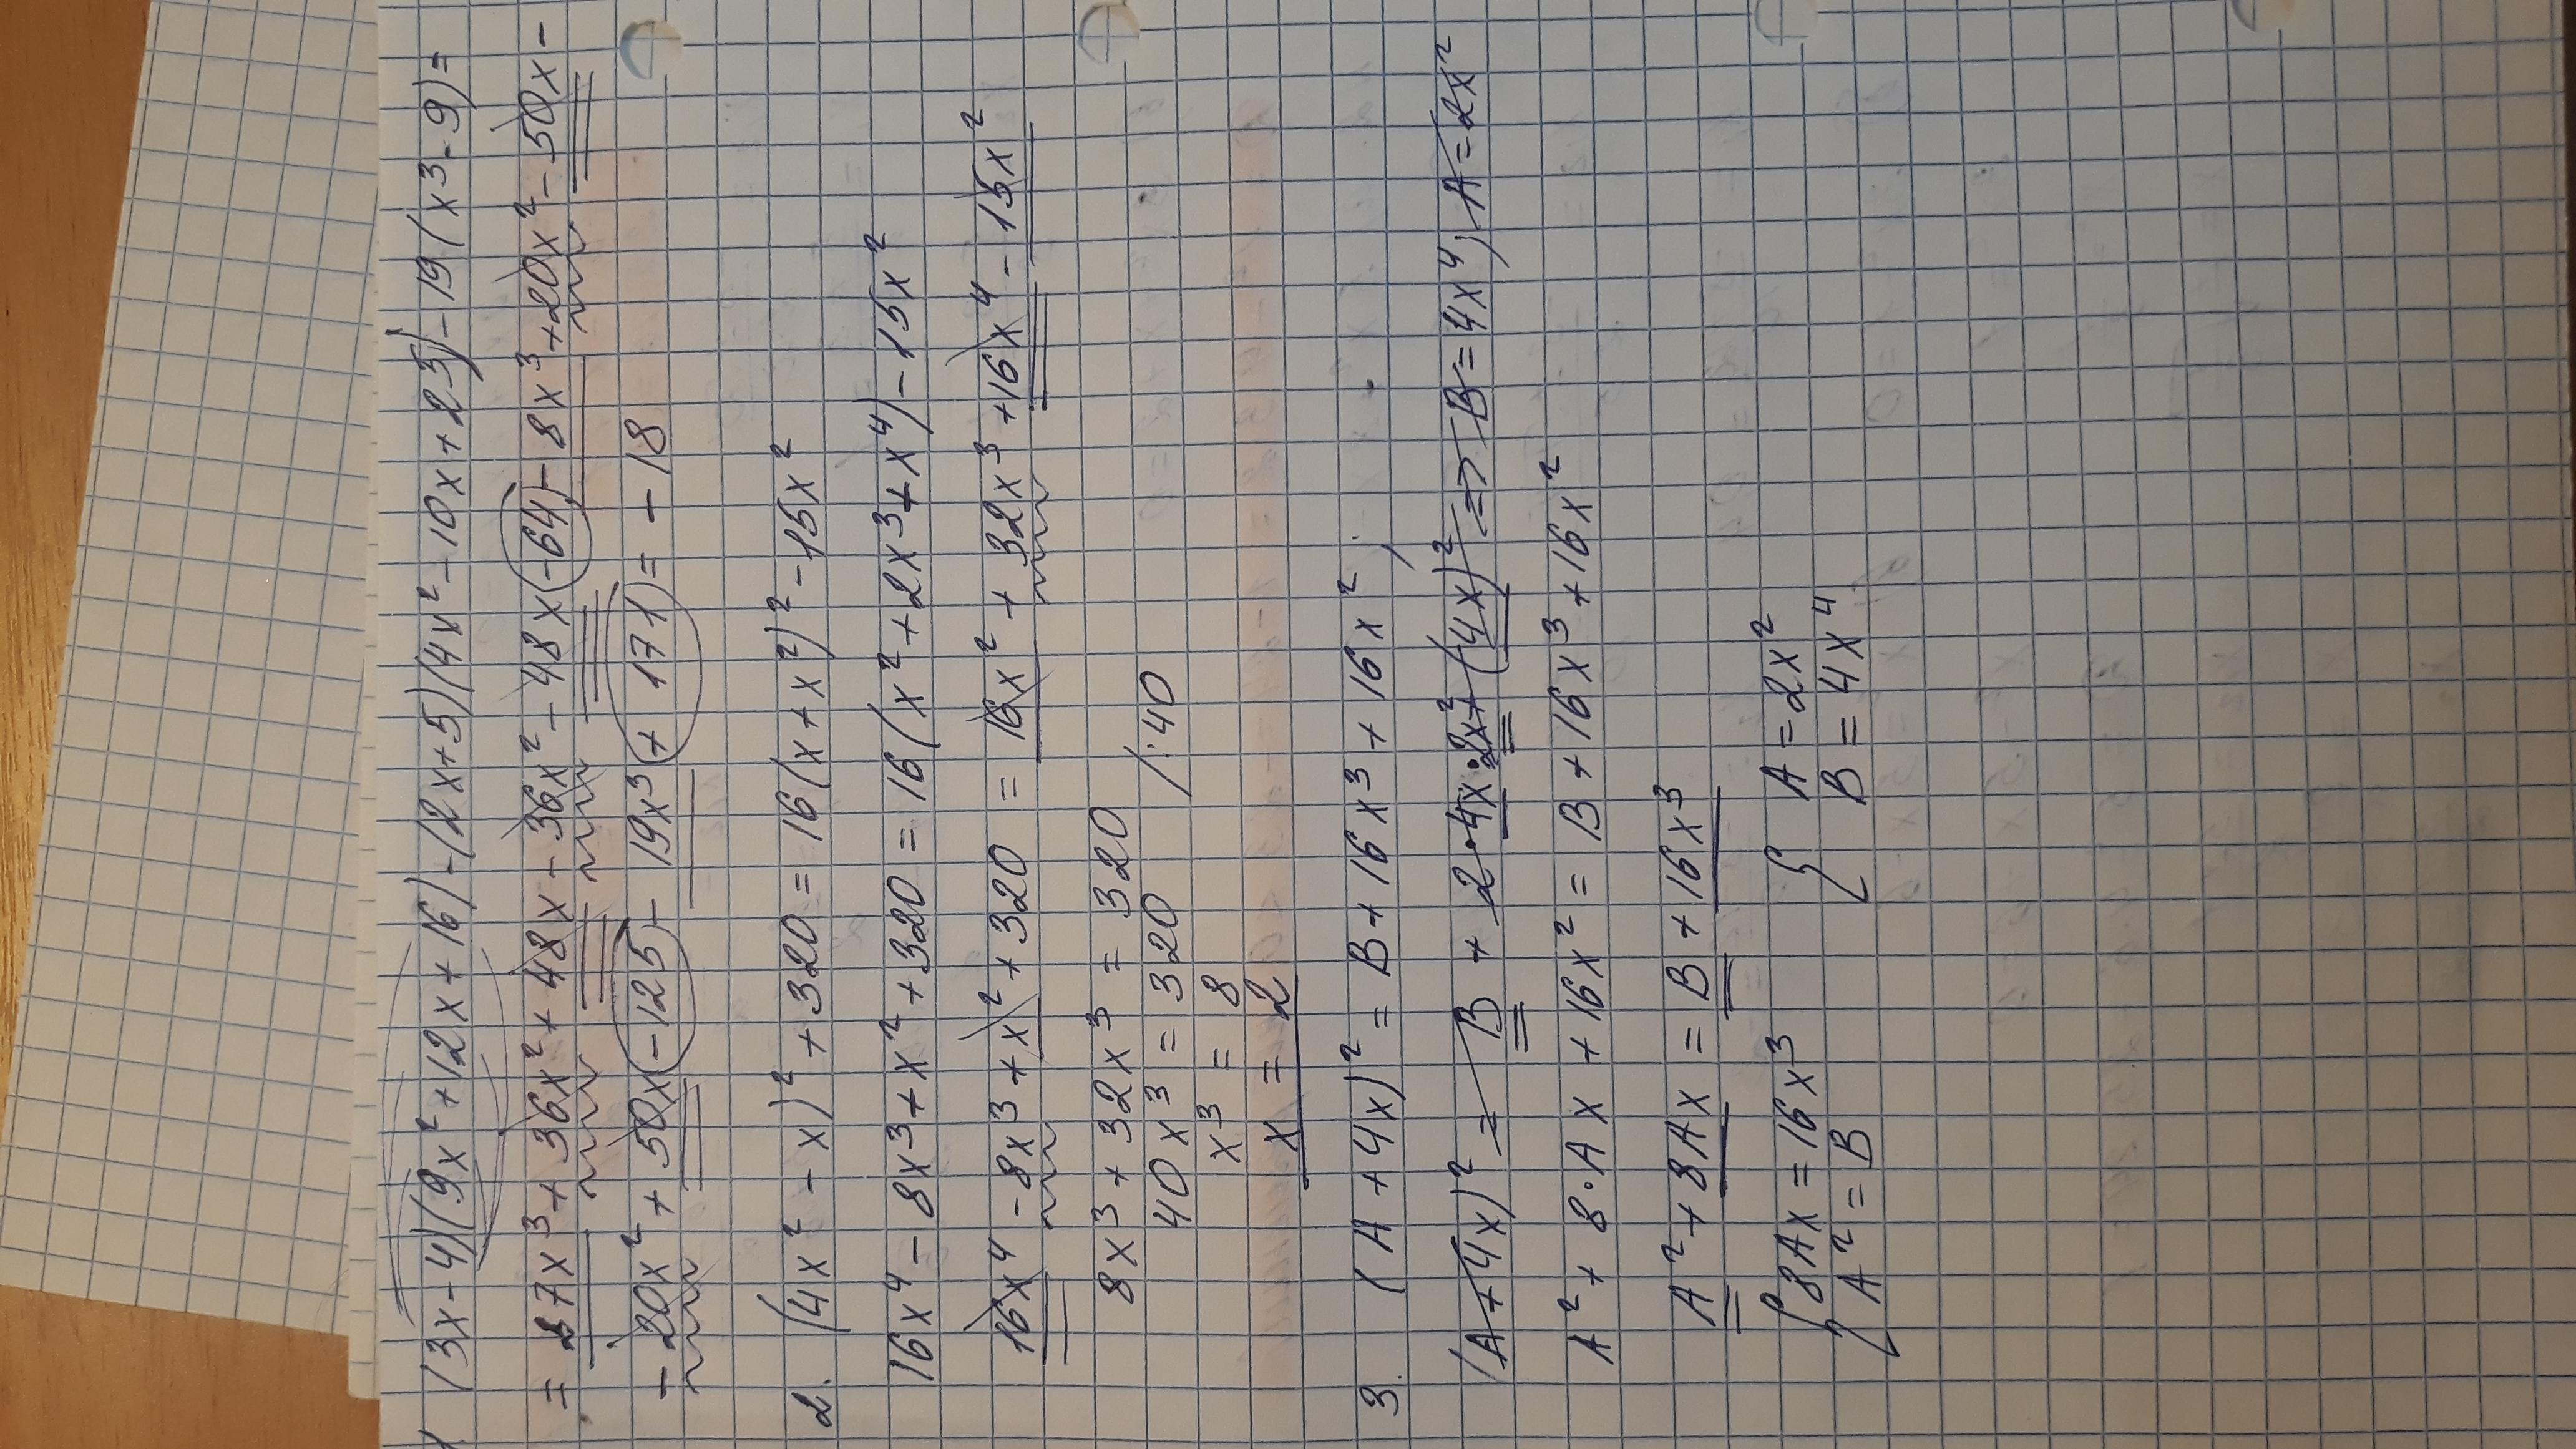 (3x-4)(9x²+12x+16)-(2x+5)(4x²-10x+25)-19(x³-9)=
= 27x³+36x²+48x-36x²-48x(-64)-8x³+20x²-50x-
-20x²+50x(-125)-19x³(+171)=-18
2. (4x²-x)²+320=16(x+x²)²-15x²
16x⁴-8x³+x²+320=16(x²+2x³+x⁴)-15x²
16x⁴-8x³+x²+320 = 16x²+32x³+16x⁴-15x²
8x³+32x³=320
40x³=320 /:40
x³=8
x=2
3. (A+4x)²=B+16x³+16x²
(A+4x)²= B+2·4x·2x²+(4x)² => B=4x⁴, A=2x²
A²+8·Ax+16x²=B+16x³+16x²
A²+8Ax=B+16x³
{ 8Ax=16x³ { A=2x²
A²=B B=4x⁴